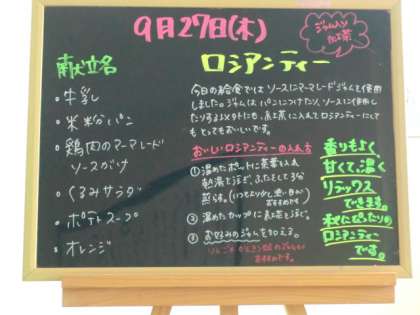 9月27日(木)
ジャム入り
紅茶
献立名
・牛乳
・米粉パン
・鶏肉のマーマレード
ソースがけ
・くるみサラダ
・ポテトスープ
・オレンジ
ロシアンティー
今日の給食ではソースにマーマレードジャムを使用
しました。ジャムはパンにつけたり、ソースに使用し
たりする以外にも、紅茶に入れてロシアンティーにして
もとってもおいしいです。
おいしいロシアンティーの入れ方
① 温めたポットに茶葉を入れ
熱湯を注ぎ、ふたをして3分
蒸らす。(いつもより少し濃い目が
おすすめです
② 温めたカップに紅茶を注ぐ。
③ お好みのジャムを加える。
りんごや
のジャムが
おすすめです。
香りもよく
甘くて、濃く
リラックス
できます。
秋にぴったりの
ロシアンティー
です。